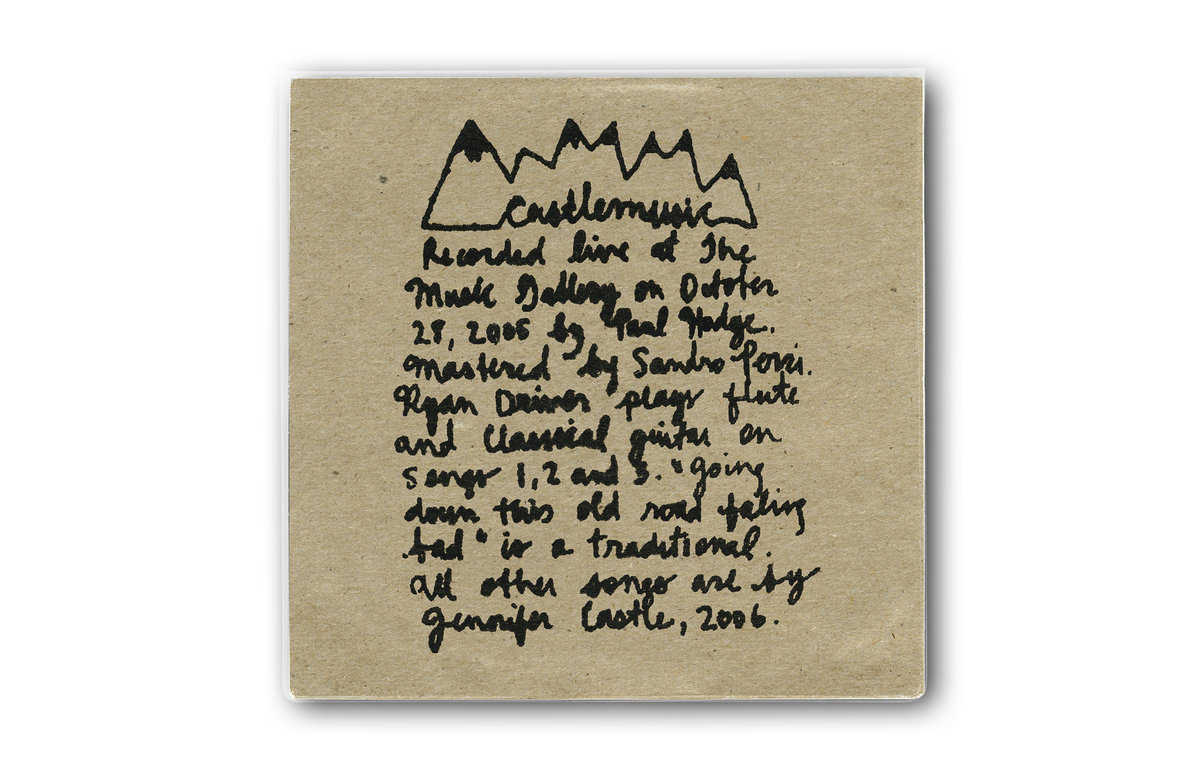 Castlemusic
Recorded live at The
Music Gallery on October
28, 2005 by Paul Hodge.
Mastered by Sandro Perri.
Ryan Driver plays flute
and Classical guitar on
songs 1, 2 and 3. "going
down this old road faling
bad" is a traditional.
All other songs are by
Jennifer Castle, 2006.